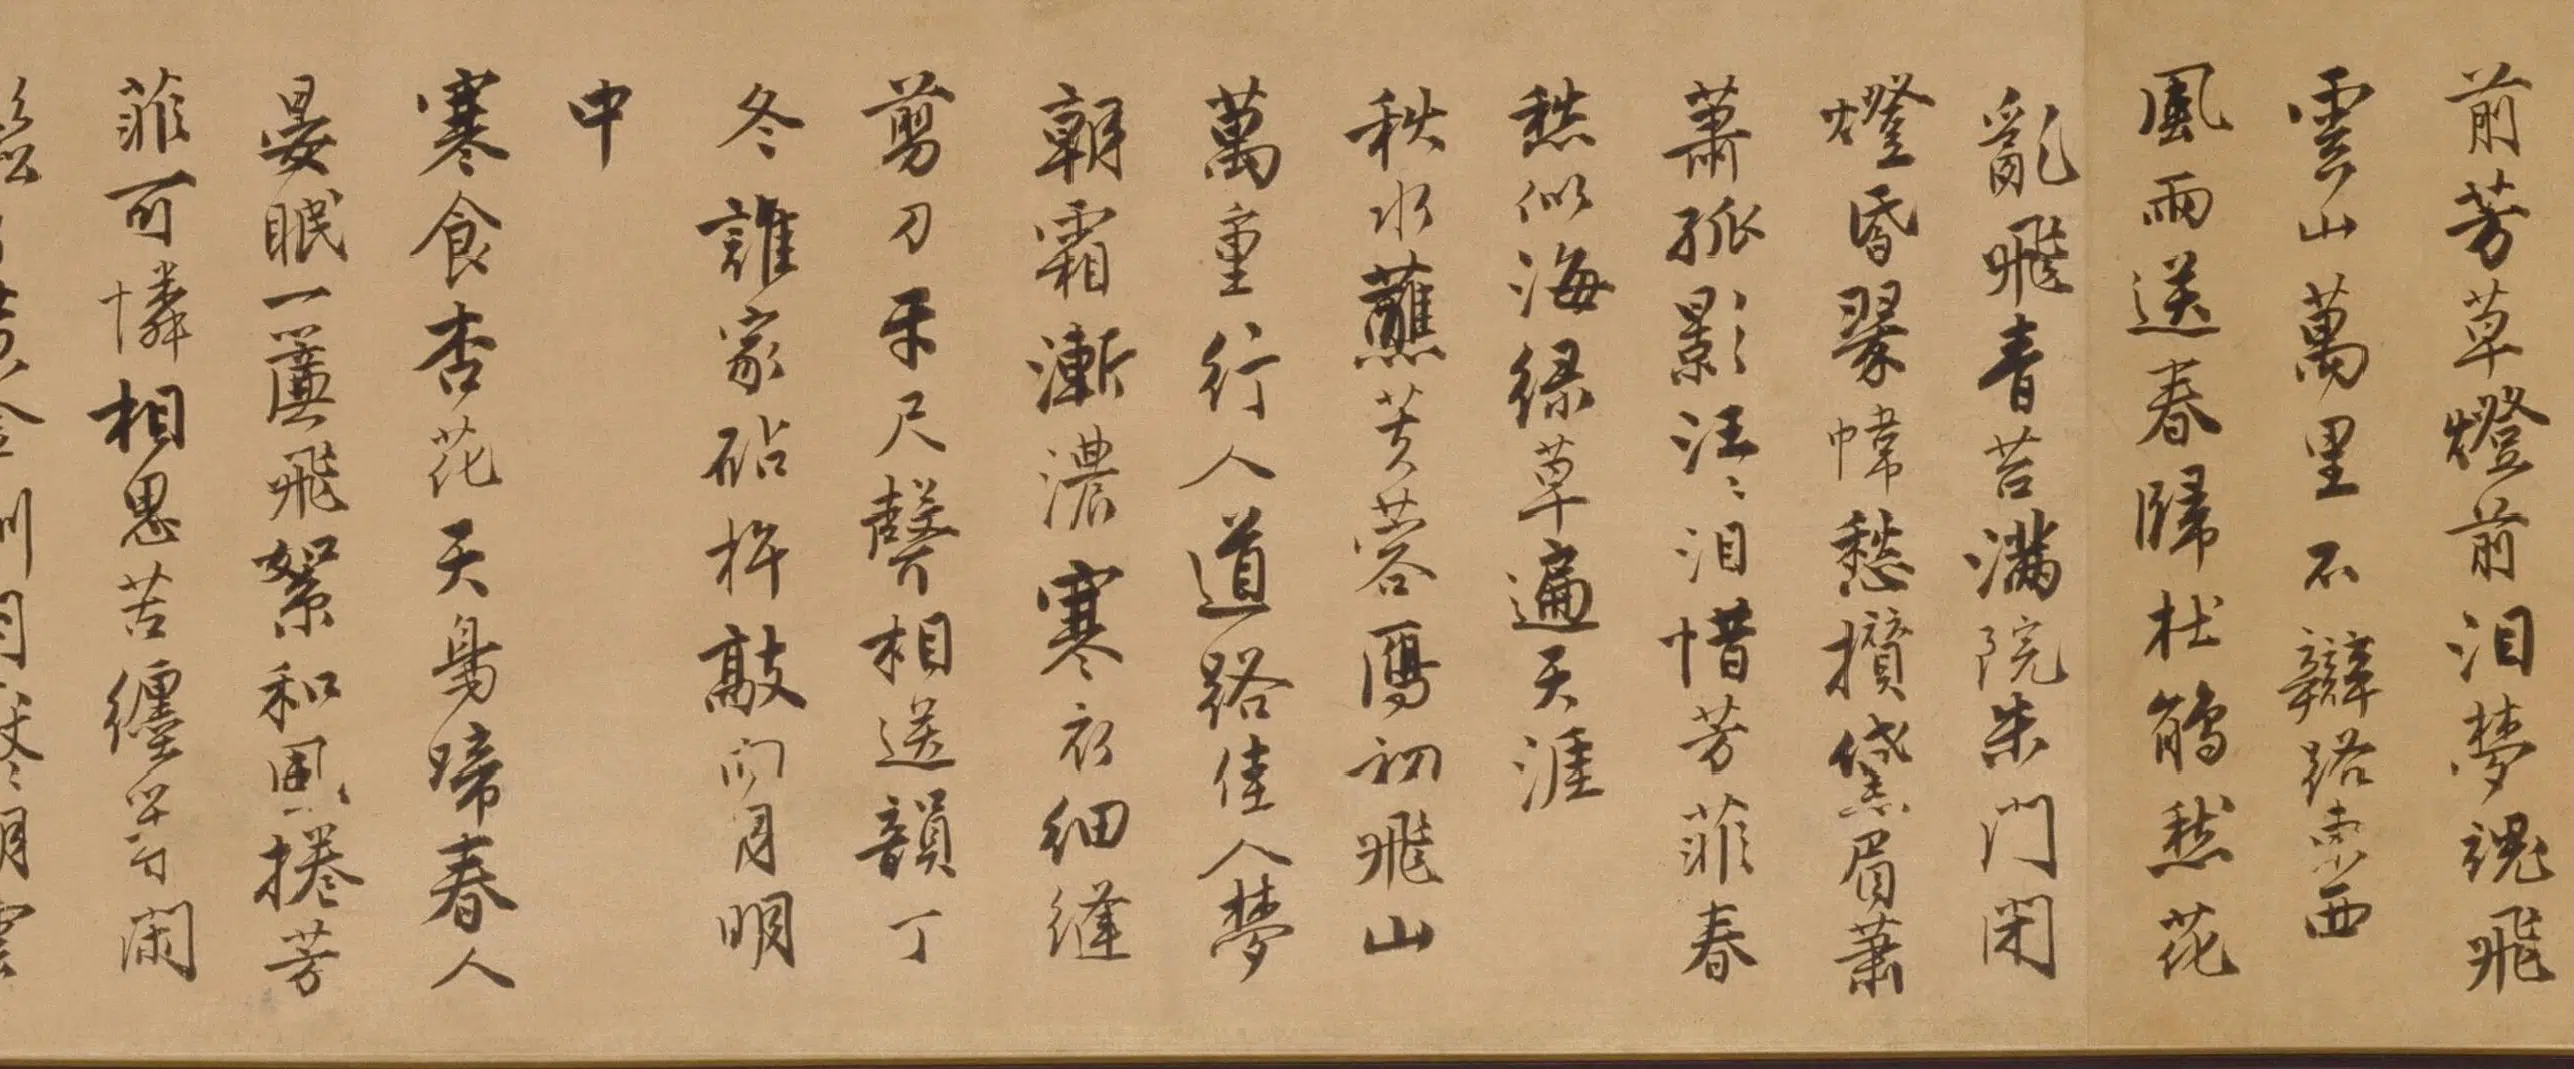 前芳草燈前淚夢魂飛
雲山萬里不辯路東西
風雨送春歸杜鵑愁花
亂飛青苔滿院朱門閉
燈昏翠幃愁攢黛眉蕭
蕭孤影汪汪淚惜芳菲春
愁似海綠草遍天涯
秋水蘸芙蓉鴈初飛山
萬重行人道路佳人夢
朝霜漸濃寒衣細縫
剪刀牙尺聲相送韻丁
冬誰家砧杵敲向月明
中
寒食杏花天鳥啼春人
晏眠一簾飛絮和風捲芳
菲可憐相思苦纏等閑